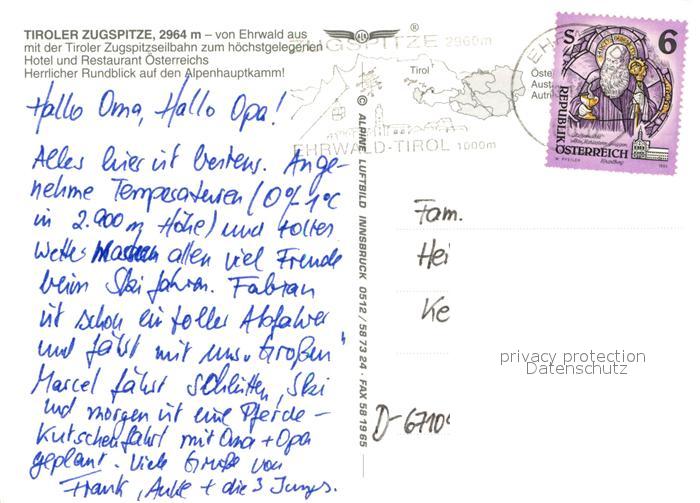 TIROLER ZUGSPITZE, 2964 m – von Ehrwald aus
mit der Tiroler Zugspitzseilbahn zum höchstgelegenen
Hotel und Restaurant Österreichs
Herrlicher Rundblick auf den Alpenhauptkamm!
Hallo Oma, Hallo Opa!
Alles hier ist bestens. Ange-
nehme Temperaturen (0°/1°C
in 2.900 m Höhe) und tolles
Wetter machen allen viel Freude
beim Ski fahren. Fabian
ist schon ein toller Abfahrer
und fährt mit uns „Großen"
Marcel fährt Schlitten, Ski
und morgen ist eine Pferde-
Kutschenfahrt mit Oma + Opa
geplant. Viele Grüße von
Frank, Anke + die 3 Jungs.
© ALPINE LUFTBILD INNSBRUCK 0512 / 58 73 24 · FAX 58 19 65
ZUGSPITZE 2960m
Tirol
EHRWALD-TIROL 1000m
EH
Öste
Aust
Autri
S 6
REPUBLIK
ÖSTERREICH
Fam.
Hei
Ke
D-6710
privacy protection
Datenschutz